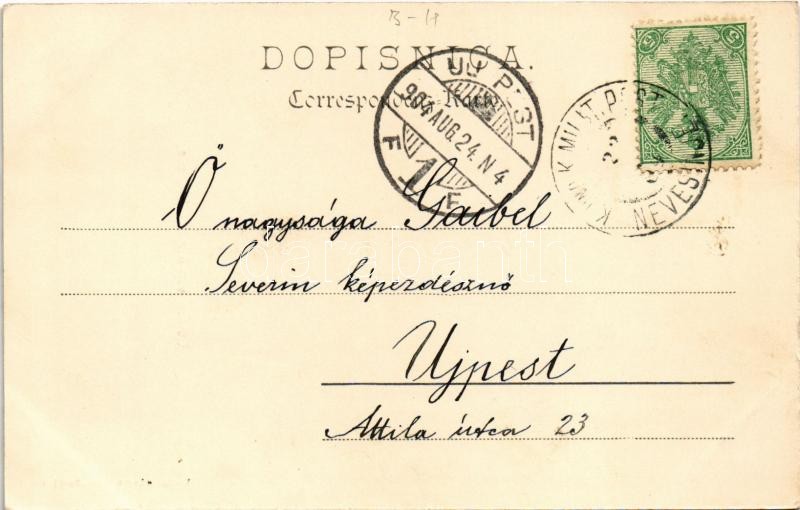 B-H
DOPISNICA.
Correspondenz-Karte
UJPEST
904 AUG. 24. N 4
F 1 F
K. und K. MILIT. POST
NEVESINJE
5 5
Ő nagysága Gaibel
Severin képezdésznő
Ujpest
Attila útca 23
darabanth